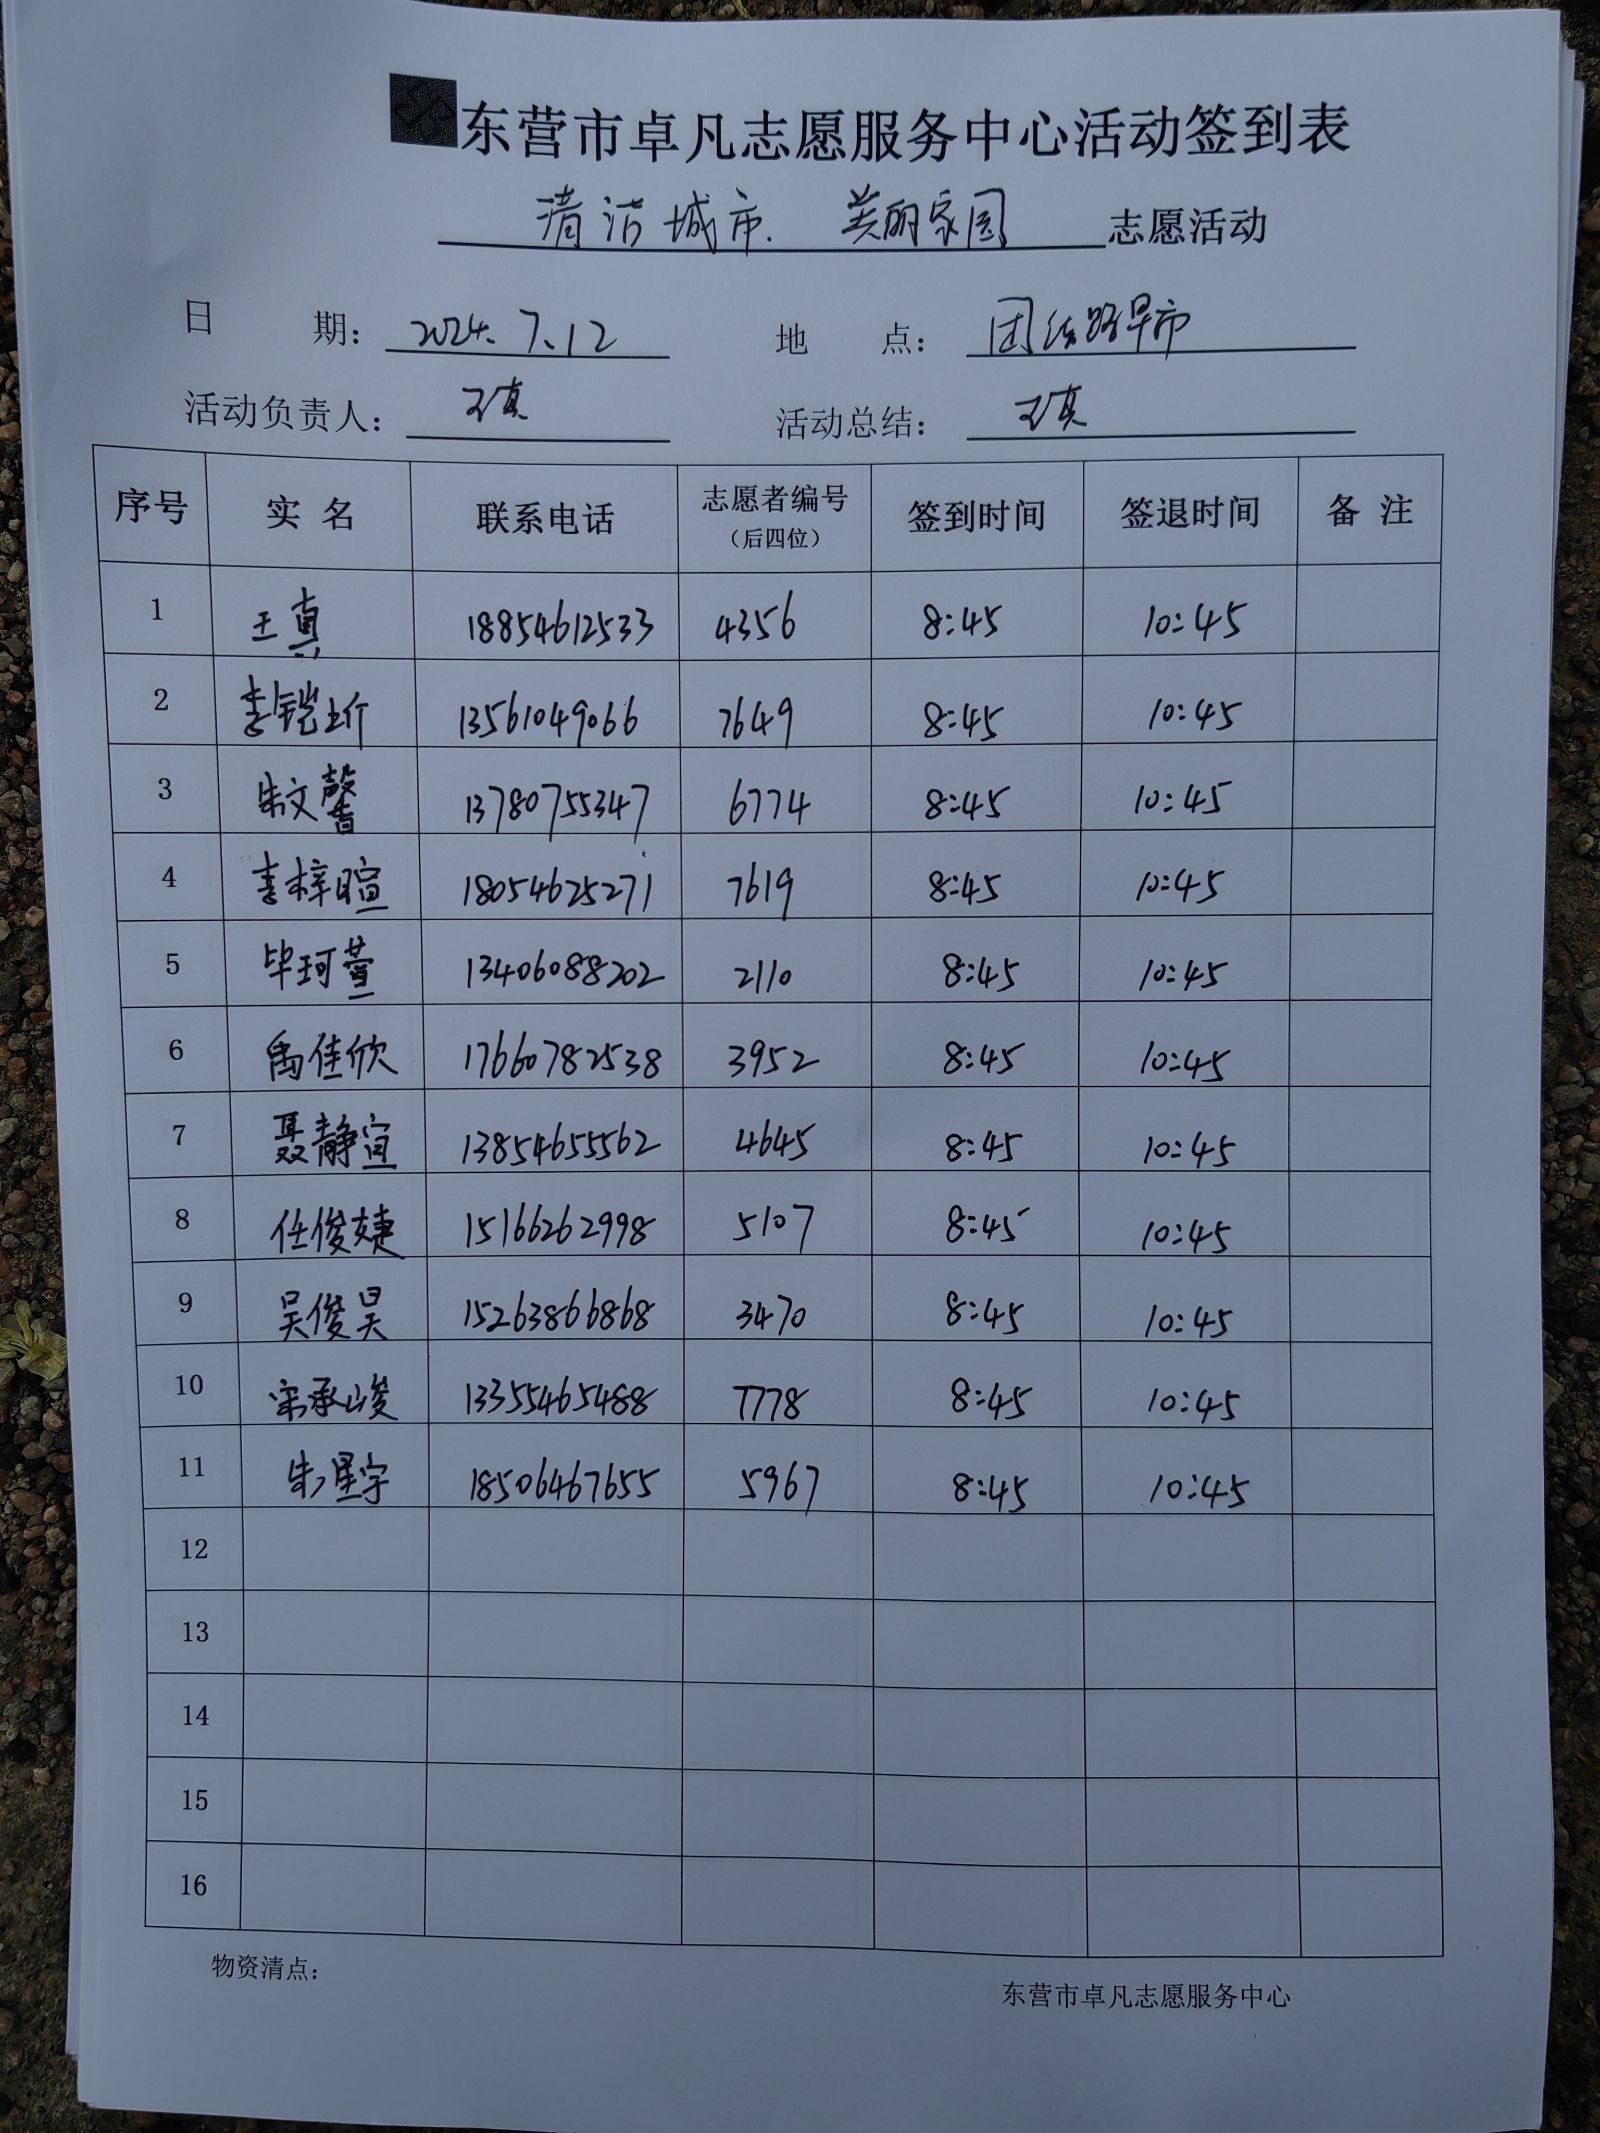 东营市卓凡志愿服务中心活动签到表
清洁城市. 美丽家园 志愿活动
日 期: 2024.7.12 地 点: 团结路早市
活动负责人: 王真 活动总结: 王真
序号 实名 联系电话 志愿者编号(后四位) 签到时间 签退时间 备注
1 王真 18854612533 4356 8:45 10:45
2 李铠圻 13561049066 7649 8:45 10:45
3 朱文馨 13780755347 6774 8:45 10:45
4 李梓暄 18054625271 7619 8:45 10:45
5 毕珂萱 13406088202 2110 8:45 10:45
6 禹佳欣 17660782538 3952 8:45 10:45
7 聂静宜 13854655562 4645 8:45 10:45
8 任俊婕 15166262998 5107 8:45 10:45
9 吴俊昊 15263866868 3470 8:45 10:45
10 宋承峻 13355465488 7778 8:45 10:45
11 朱星宇 18506467655 5967 8:45 10:45
12
13
14
15
16
物资清点:
东营市卓凡志愿服务中心